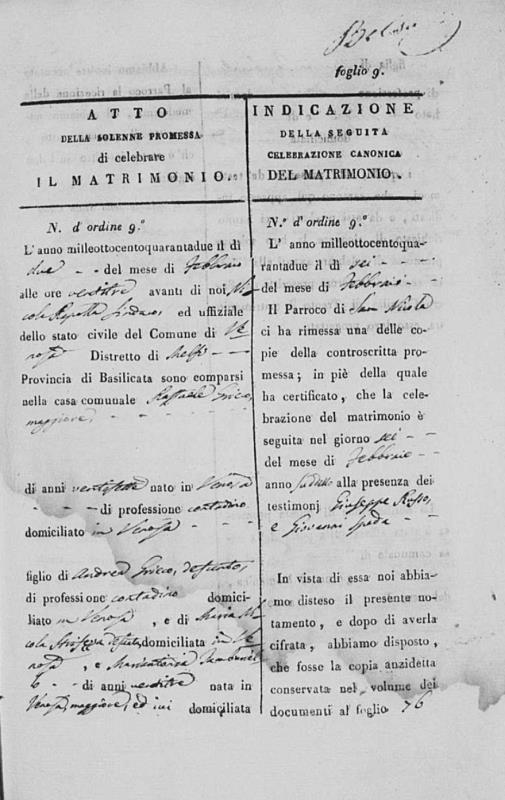 foglio 9.
ATTO
DELLA SOLENNE PROMESSA
di celebrare
IL MATRIMONIO.
N. d'ordine 9.º
L'anno milleottocentoquarantadue il dì
due - - del mese di Febbraio
alle ore ventitre avanti di noi Ni-
cola Rapolla Sindaco ed uffiziale
dello stato civile del Comune di Ve
nosa Distretto di Melfi - - -
Provincia di Basilicata sono comparsi
nella casa comunale Raffaele Grieco,
maggiore, - - - - -
di anni ventisette nato in Venosa
- - - di professione contadino
domiciliato in Venosa - -
figlio di Andrea Grieco, defunto,
di professione contadino domici-
liato in Venosa , e di Maria Ni
cola defunta, domiciliata in Ve
nosa , e Mariantonia
- - di anni ventitre nata in
Venosa, maggiore, ed ivi domiciliata
INDICAZIONE
DELLA SEGUITA
CELEBRAZIONE CANONICA
DEL MATRIMONIO.
N.º d'ordine 9.º
L'anno milleottocentoqua-
rantadue il dì sei - -
del mese di Febbraio -
Il Parroco di San Nicola
ci ha rimessa una delle co-
pie della controscritta pro-
messa; in piè della quale
ha certificato, che la cele-
brazione del matrimonio è
seguita nel giorno sei - -
del mese di Febbraio - -
anno suddetto alla presenza dei
testimonj Giuseppe Russo,
e Giovanni Spada - -
In vista di essa noi abbia-
mo disteso il presente no-
tamento, e dopo di averla
cifrata, abbiamo disposto,
che fosse la copia anzidetta
conservata nel volume dei
documenti al foglio 76